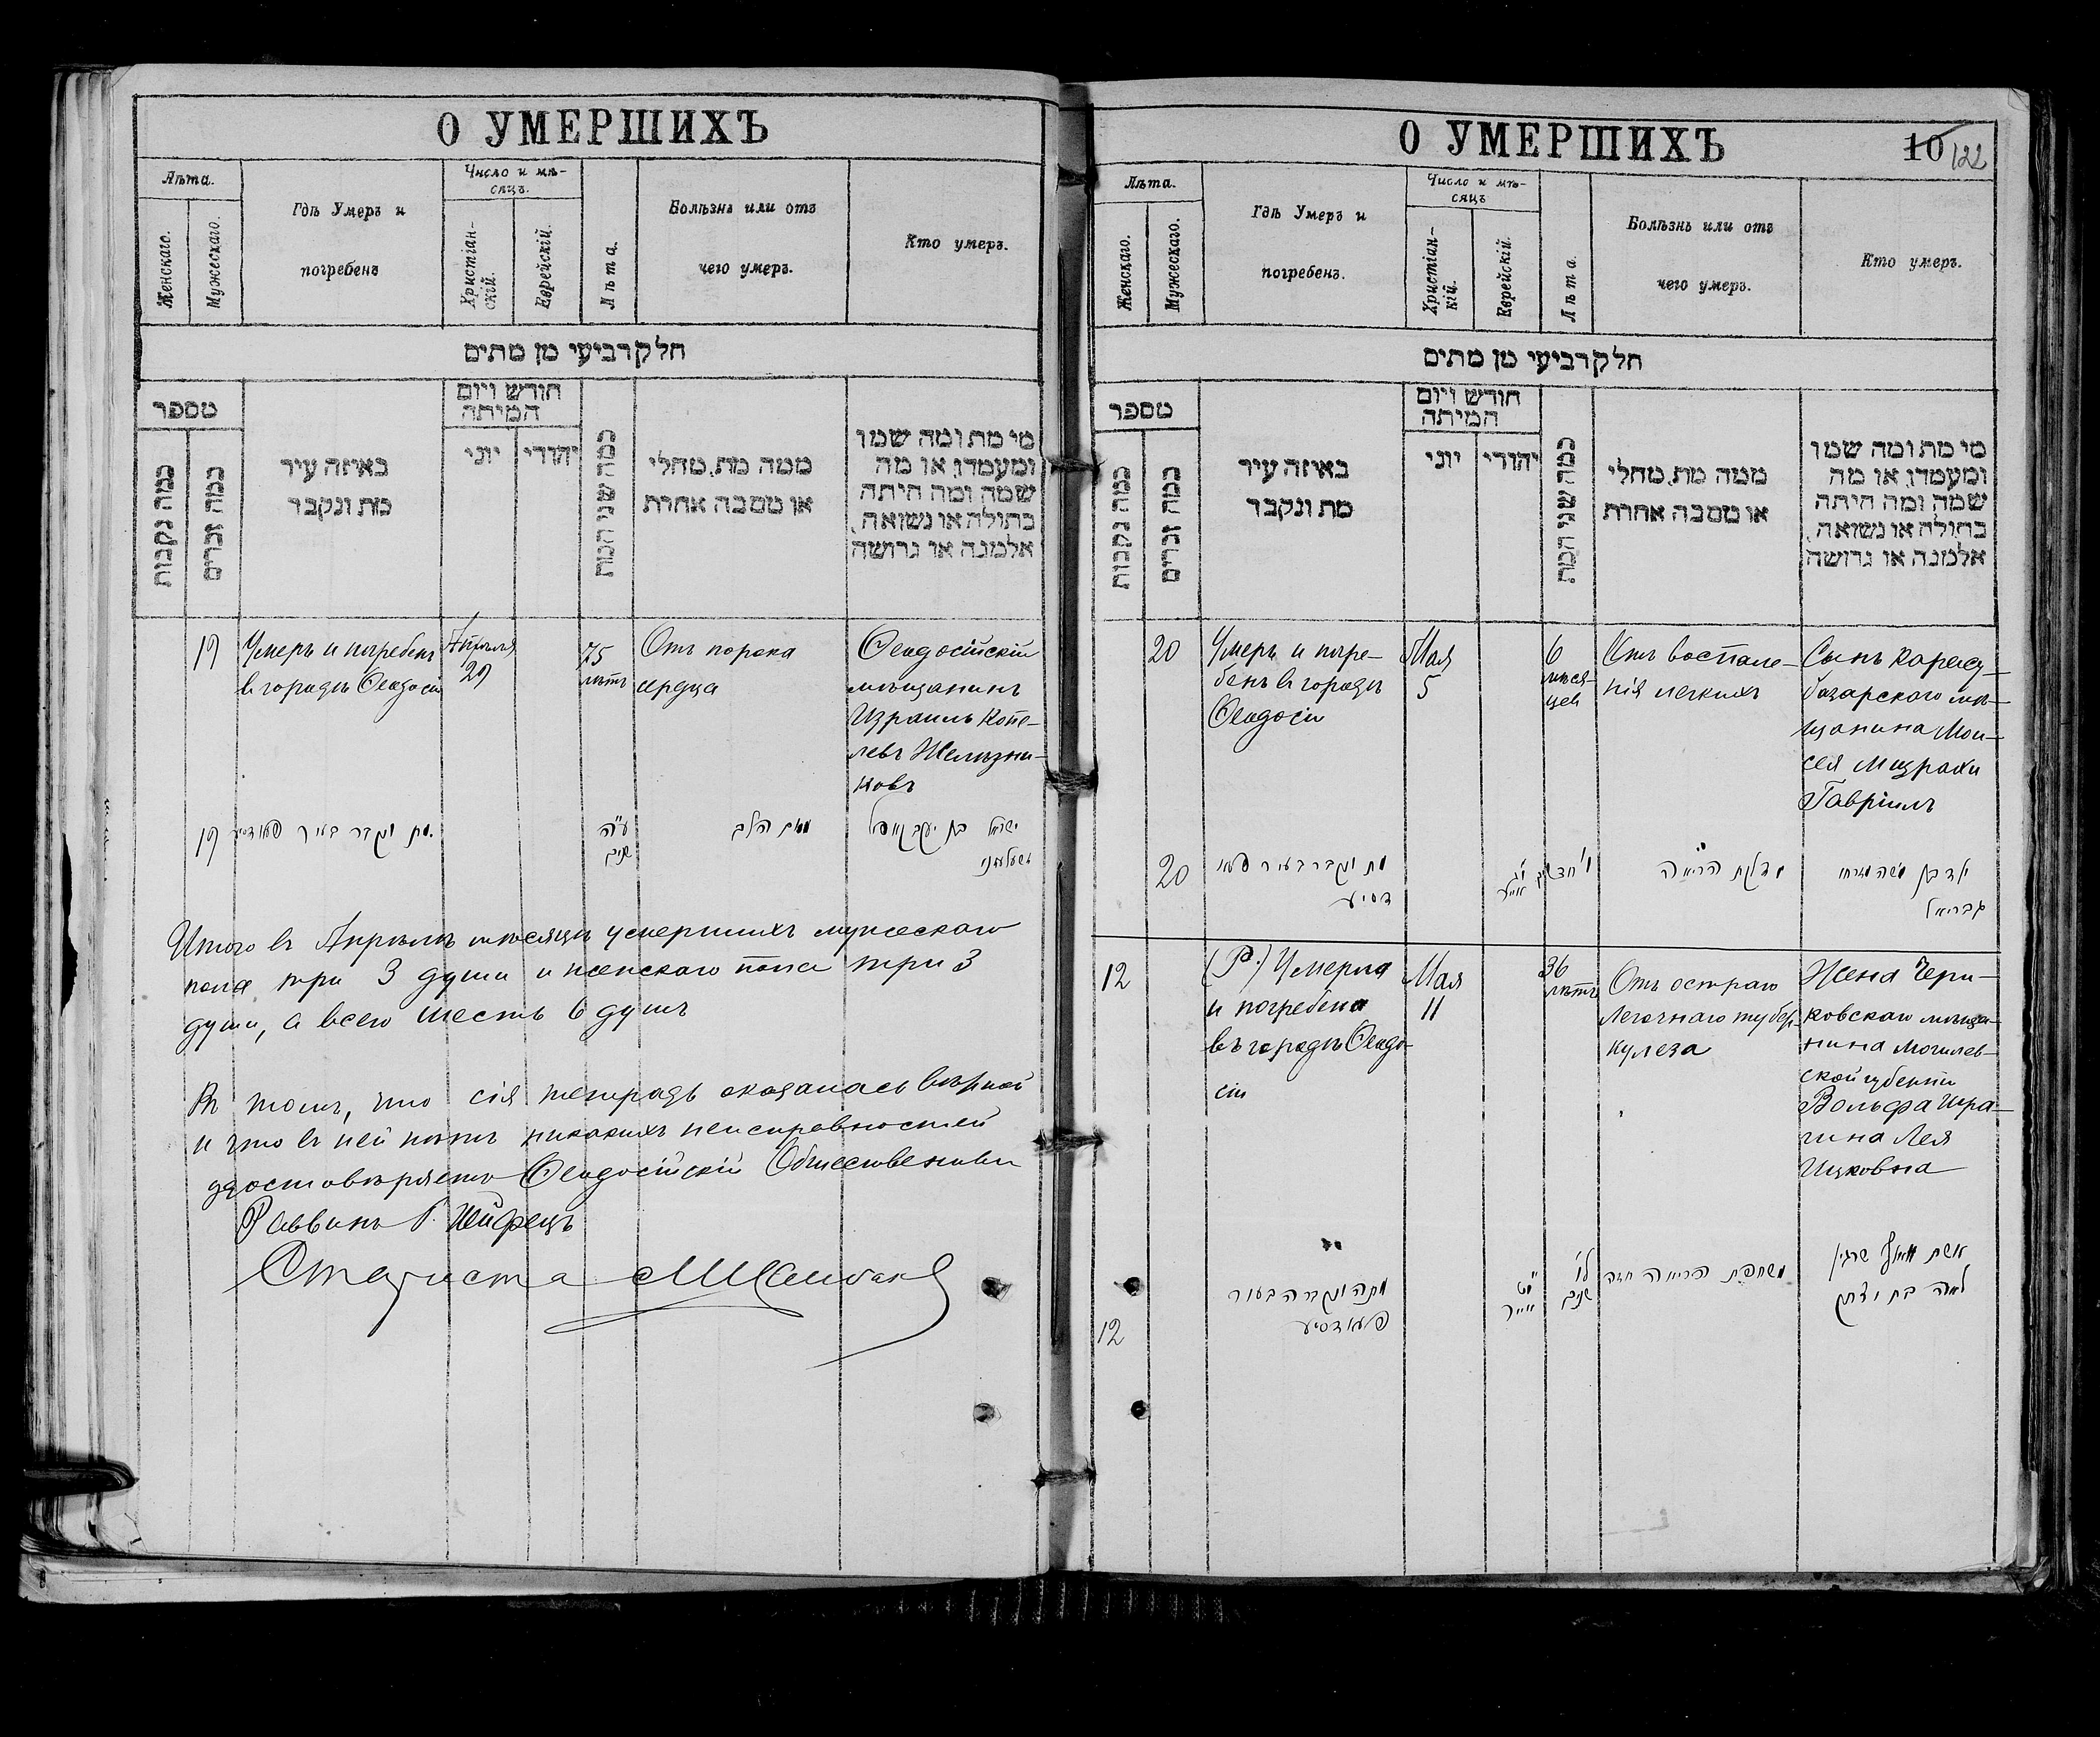 О УМЕРШИХЪ
Лѣта.
Женскаго.
Мужескаго.
Гдѣ Умеръ и
погребенъ
Число и мѣ-
сяцъ.
Христіан-
скій.
Еврейскій.
Лѣта.
Болѣзнь или отъ
чего умеръ.
Кто умеръ.
חלק רביעי מן מתים
מספר
כמה נקבות
כמה זכרים
באיזה עיר
מת ונקבר
חודש ויום
המיתה
יוני
יהודי
כמה שני המת
ממה מת, מחלי
או מסבה אחרת
מי מת ומה שמו
ומעמדו, או מה
שמה ומה היתה
בתולה או נשואה,
אלמנה או גרושה
19
Умеръ и погребенъ
въ городѣ Ѳеодосіи
Апрѣля
29
75
лѣтъ
Отъ порока
сердца
Ѳеодосійскій
мѣщанинъ
Израиль Копе-
левъ Желѣзни-
ковъ
19
מת ונקבר בעיר
ע״ה
שנים
הלב
ישראל בן
Итого въ Апрѣлѣ мѣсяцѣ умершихъ мужескаго
пола три 3 души и женскаго пола три 3
души, а всего шесть 6 душъ
Въ томъ, что сія тетрадь оказалась вѣрной
и что въ ней нѣтъ никакихъ неисправностей
удостовѣряетъ Ѳеодосійскій Общественный
Раввинъ
Староста
О УМЕРШИХЪ
10
122
Лѣта.
Женскаго.
Мужескаго.
Гдѣ Умеръ и
погребенъ.
Число и мѣ-
сяцъ
Христіан-
кій.
Еврейскій.
Лѣта.
Болѣзнь или отъ
чего умеръ.
Кто умеръ.
חלק רביעי מן מתים
מספר
כמה נקבות
כמה זכרים
באיזה עיר
מת ונקבר
חודש ויום
המיתה
יוני
יהודי
כמה שני המת
ממה מת, מחלי
או מסבה אחרת
מי מת ומה שמו
ומעמדו, או מה
שמה ומה היתה
בתולה או נשואה,
אלמנה או גרושה
20
Умеръ и погре-
бенъ въ городѣ
Ѳеодосіи
Мая
5
6
мѣся-
цев
Отъ воспале-
нія легкихъ
Сынъ Карасу-
базарскаго мѣ-
щанина Мои-
сея Мизрахи
Гавріилъ
20
מת ונקבר בעיר
אייר
ו׳ חדשים
דלקת הריאה
ילד בן משה מזרחי
גבריאל
12
(Р.) Умерла
и погребена
въ городѣ Ѳеодо-
сіи
Мая
11
36
лѣтъ
Отъ остраго
легочнаго тубер-
кулеза
Жена Чери-
ковскаго мѣща-
нина Могилев-
ской губерніи
Вольфа Шра-
гина Лея
Ицковна
12
מתה ונקברה בעיר
אייר
לו
שנים
משחפת הריאה
אשת וואלף שרגין
לאה בת יצחק